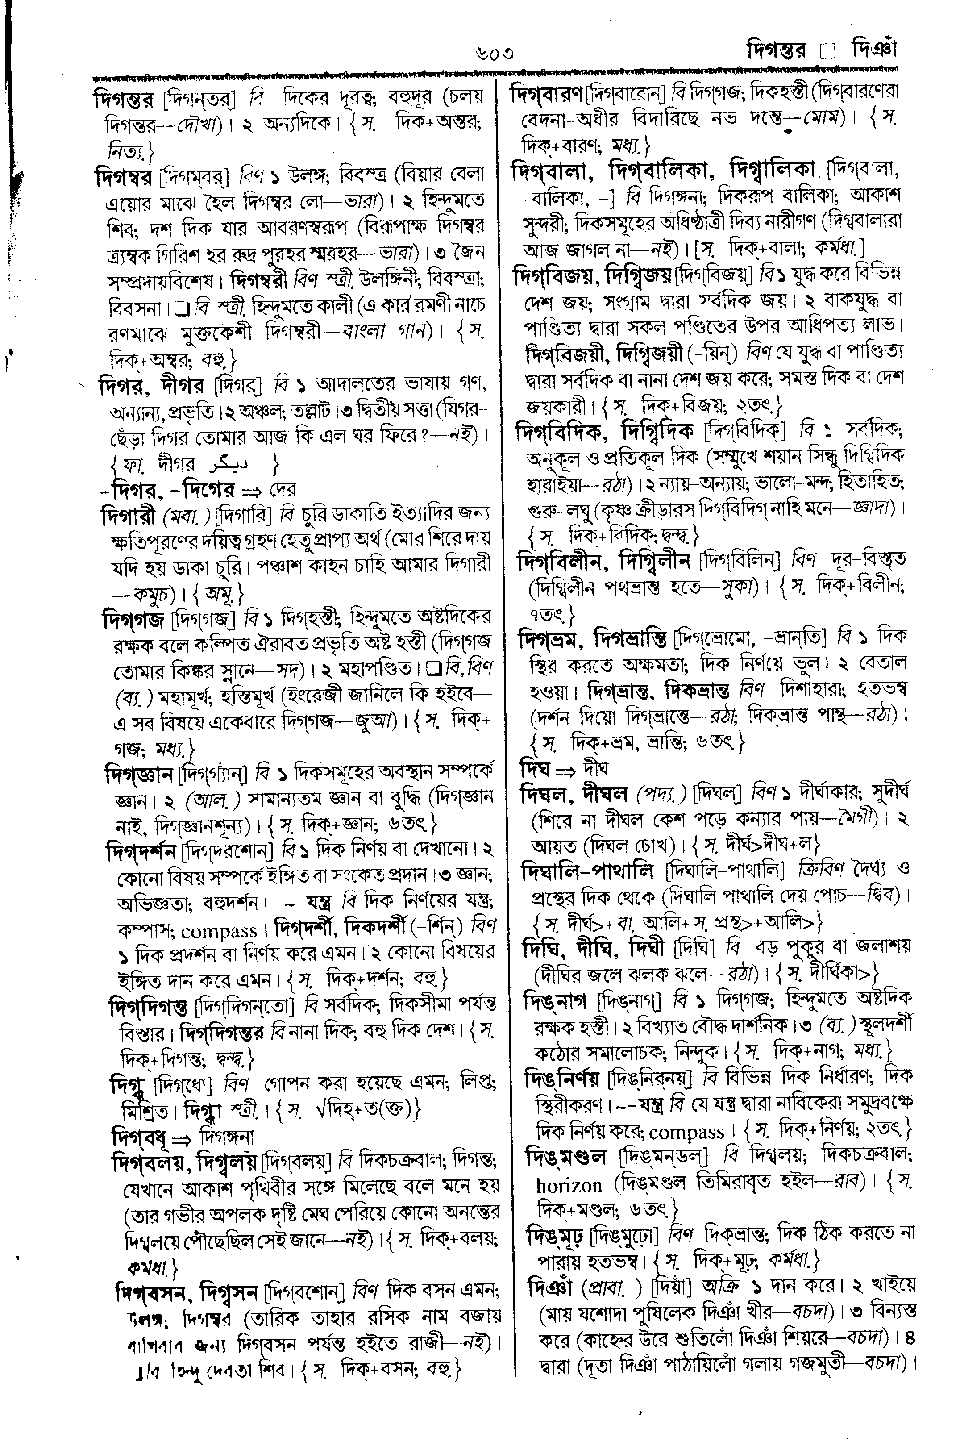 ৬০৩
দিগন্তর □ দিঞাঁ
দিগন্তর [দিগন্‌তর্] বি দিকের দূরত্ব; বহুদূর (চলয়
দিগন্তর—দৌখা)। ২ অন্যদিকে। {স. দিক্+অন্তর;
নিত্য.}
দিগম্বর [দিগম্‌বর্] বিণ ১ উলঙ্গ; বিবস্ত্র (বিয়ার বেলা
এয়োর মাঝে হৈল দিগম্বর লো—ভারা)। ২ হিন্দুমতে
শিব; দশ দিক যার আবরণস্বরূপ (বিরূপাক্ষ দিগম্বর
ত্র্যম্বক গিরিশ হর রুদ্র পুরহর স্মরহর—ভারা)। ৩ জৈন
সম্প্রদায়বিশেষ। দিগম্বরী বিণ স্ত্রী. উলঙ্গিনী; বিবস্ত্রা;
বিবসনা। □ বি স্ত্রী. হিন্দুমতে কালী (এ কার রমণী নাচে
রণমাঝে মুক্তকেশী দিগম্বরী—বাংলা গান)। {স.
দিক্+অম্বর; বহু.}
দিগর, দীগর [দিগর্] বি ১ আদালতের ভাষায় গণ,
অন্যান্য, প্রভৃতি। ২ অঞ্চল; তল্লাট। ৩ দ্বিতীয় সত্তা (যিগর-
ছেঁড়া দিগর তোমার আজ কি এল ঘর ফিরে?—নই)।
{ফা. দীগর دیگر }
-দিগর, -দিগের ⇒ দের
দিগারী (মবা.) [দিগারি] বি চুরি ডাকাতি ইত্যাদির জন্য
ক্ষতিপূরণের দায়িত্ব গ্রহণ হেতু প্রাপ্য অর্থ (মোর শিরে দায়
যদি হয় ডাকা চুরি। পঞ্চাশ কাহন চাহি আমার দিগারী
—কমুচ)। {অমূ.}
দিগ্‌গজ [দিগ্‌গজ্] বি ১ দিগ্‌হস্তী; হিন্দুমতে অষ্টদিকের
রক্ষক বলে কল্পিত ঐরাবত প্রভৃতি অষ্ট হস্তী (দিগ্‌গজ
তোমার কিঙ্কর স্নানে—সদ)। ২ মহাপণ্ডিত। □ বি, বিণ
(ব্য.) মহামূর্খ; হস্তিমূর্খ (ইংরেজী জানিলে কি হইবে—
এ সব বিষয়ে একেবারে দিগ্‌গজ—জুআ)। {স. দিক্+
গজ; মধ্য.}
দিগ্‌জ্ঞান [দিগ্‌গ্যাঁন্] বি ১ দিকসমূহের অবস্থান সম্পর্কে
জ্ঞান। ২ (আল.) সামান্যতম জ্ঞান বা বুদ্ধি (দিগ্‌জ্ঞান
নাই, দিগ্‌জ্ঞানশূন্য)। {স. দিক্+জ্ঞান; ৬তৎ}
দিগ্‌দর্শন [দিগ্‌দর্‌শোন্] বি ১ দিক নির্ণয় বা দেখানো। ২
কোনো বিষয় সম্পর্কে ইঙ্গিত বা সংকেত প্রদান। ৩ জ্ঞান;
অভিজ্ঞতা; বহুদর্শন। - যন্ত্র বি দিক নির্ণয়ের যন্ত্র;
কম্পাস; compass। দিগ্‌দর্শী, দিকদর্শী (-র্শিন্) বিণ
১ দিক প্রদর্শন বা নির্ণয় করে এমন। ২ কোনো বিষয়ের
ইঙ্গিত দান করে এমন। {স. দিক্+দর্শন; বহু}
দিগ্‌দিগন্ত [দিগ্‌দিগন্‌তো] বি সর্বদিক; দিকসীমা পর্যন্ত
বিস্তার। দিগ্‌দিগন্তর বি নানা দিক; বহু দিক দেশ। {স.
দিক্+দিগন্ত; দ্বন্দ্ব.}
দিগ্ধ [দিগ্‌ধো] বিণ গোপন করা হয়েছে এমন; লিপ্ত;
মিশ্রিত। দিগ্ধা স্ত্রী.। {স. √দিহ্+ত(ক্ত)}
দিগ্‌বধূ ⇒ দিগঙ্গনা
দিগ্‌বলয়, দিগ্বলয় [দিগ্‌বলয়্] বি দিকচক্রবাল; দিগন্ত;
যেখানে আকাশ পৃথিবীর সঙ্গে মিলেছে বলে মনে হয়
(তার গভীর অপলক দৃষ্টি মেঘ পেরিয়ে কোনো অনন্তের
দিগ্বলয়ে পৌঁছেছিল সেই জানে—নই)। {স. দিক্+বলয়;
কর্মধা.}
দিগ্‌বসন, দিগ্বসন [দিগ্‌বশোন্] বিণ দিক বসন এমন;
উলঙ্গ; দিগম্বর (তারিক তাহার রসিক নাম বজায়
রাখিবার জন্য দিগ্‌বসন পর্যন্ত হইতে রাজী—নই)।
□ বি হিন্দু দেবতা শিব। {স. দিক্+বসন; বহু}
দিগ্‌বারণ [দিগ্‌বারোন্] বি দিগ্‌গজ; দিকহস্তী (দিগ্‌বারণেরা
বেদনা-অধীর বিদারিছে নভ দন্তে—মোম)। {স.
দিক্+বারণ; মধ্য.}
দিগ্‌বালা, দিগ্‌বালিকা, দিগ্বালিকা [দিগ্‌বালা,
বালিকা, -] বি দিগঙ্গনা; দিকরূপ বালিকা; আকাশ
সুন্দরী; দিকসমূহের অধিষ্ঠাত্রী দিব্য নারীগণ (দিগ্বালারা
আজ জাগল না—নই)। [স. দিক্+বালা; কর্মধা.]
দিগ্‌বিজয়, দিগ্বিজয় [দিগ্‌বিজয়্] বি ১ যুদ্ধ করে বিভিন্ন
দেশ জয়; সংগ্রাম দ্বারা সর্বদিক জয়। ২ বাকযুদ্ধ বা
পাণ্ডিত্য দ্বারা সকল পণ্ডিতের উপর আধিপত্য লাভ।
দিগ্‌বিজয়ী, দিগ্বিজয়ী (-য়িন্) বিণ যে যুদ্ধ বা পাণ্ডিত্য
দ্বারা সর্বদিক বা নানা দেশ জয় করে; সমস্ত দিক বা দেশ
জয়কারী। {স. দিক্+বিজয়; ২তৎ}
দিগ্‌বিদিক, দিগ্বিদিক [দিগ্‌বিদিক্] বি ১ সর্বদিক;
অনুকূল ও প্রতিকূল দিক (সম্মুখে শয়ান সিন্ধু দিগ্বিদিক
হারাইয়া—রঠা)। ২ ন্যায়-অন্যায়; ভালো-মন্দ; হিতাহিত;
গুরু-লঘু (কৃষ্ণ ক্রীড়ারস দিগ্‌বিদিগ্ নাহি মনে—জ্ঞাদা)।
{স. দিক্+বিদিক্; দ্বন্দ্ব.}
দিগ্‌বিলীন, দিগ্বিলীন [দিগ্‌বিলিন্] বিণ দূর-বিস্তৃত
(দিগ্বিলীন পথভ্রান্ত হতে—সুকা)। {স. দিক্+বিলীন;
৭তৎ}
দিগ্‌ভ্রম, দিগ্‌ভ্রান্তি [দিগ্‌ভ্রোমো, -ভ্রান্‌তি] বি ১ দিক
স্থির করতে অক্ষমতা; দিক নির্ণয়ে ভুল। ২ বেতাল
হওয়া। দিগ্‌ভ্রান্ত, দিকভ্রান্ত বিণ দিশাহারা; হতভম্ব
(দর্শন দিয়ো দিগ্‌ভ্রান্তে—রঠা; দিকভ্রান্ত পান্থ—রঠা)।
{স. দিক্+ভ্রম, ভ্রান্তি; ৬তৎ}
দিঘ ⇒ দীঘ
দিঘল, দীঘল (পদ্য.) [দিঘল্] বিণ ১ দীর্ঘাকার; সুদীর্ঘ
(শিরে না দীঘল কেশ পড়ে কন্যার পায়—মৈগী)। ২
আয়ত (দিঘল চোখ)। {স. দীর্ঘ>দীঘ+ল}
দিঘালি-পাথালি [দিঘালি-পাথালি] ক্রিবিণ দৈর্ঘ্য ও
প্রস্থের দিক থেকে (দিঘালি পাথালি দেয় পোচ—দ্বিব)।
{স. দীর্ঘ>+বা. আলি+স. প্রস্থ>+আলি>}
দিঘি, দীঘি, দিঘী [দিঘি] বি বড় পুকুর বা জলাশয়
(দীঘির জলে ঝলক ঝলে—রঠা)। {স. দীর্ঘিকা>}
দিঙ্‌নাগ [দিঙ্‌নাগ্] বি ১ দিগ্‌গজ; হিন্দুমতে অষ্টদিক
রক্ষক হস্তী। ২ বিখ্যাত বৌদ্ধ দার্শনিক। ৩ (ব্য.) স্থূলদর্শী
কঠোর সমালোচক; নিন্দুক। {স. দিক্+নাগ; মধ্য.}
দিঙ্‌নির্ণয় [দিঙ্‌নির্‌নয়্] বি বিভিন্ন দিক নির্ধারণ; দিক
স্থিরীকরণ। --যন্ত্র বি যে যন্ত্র দ্বারা নাবিকেরা সমুদ্রবক্ষে
দিক নির্ণয় করে; compass। {স. দিক্+নির্ণয়; ২তৎ}
দিঙ্‌মণ্ডল [দিঙ্‌মন্‌ডল্] বি দিগ্বলয়; দিকচক্রবাল;
horizon (দিঙ্‌মণ্ডল তিমিরাবৃত হইল—রাব)। {স.
দিক্+মণ্ডল; ৬তৎ}
দিঙ্‌মূঢ় [দিঙ্‌মুঢ়ো] বিণ দিকভ্রান্ত; দিক ঠিক করতে না
পারায় হতভম্ব। {স. দিক্+মূঢ়; কর্মধা.}
দিঞাঁ (প্রাবা.) [দিয়াঁ] অক্রি ১ দান করে। ২ খাইয়ে
(মায় যশোদা পুষিলেক দিঞাঁ খীর—বচদা)। ৩ বিন্যস্ত
করে (কাহ্নের উরে শুতিলোঁ দিঞাঁ শিয়রে—বচদা)। ৪
দ্বারা (দূতা দিঞাঁ পাঠায়িলো গলায় গজমুতী—বচদা)।